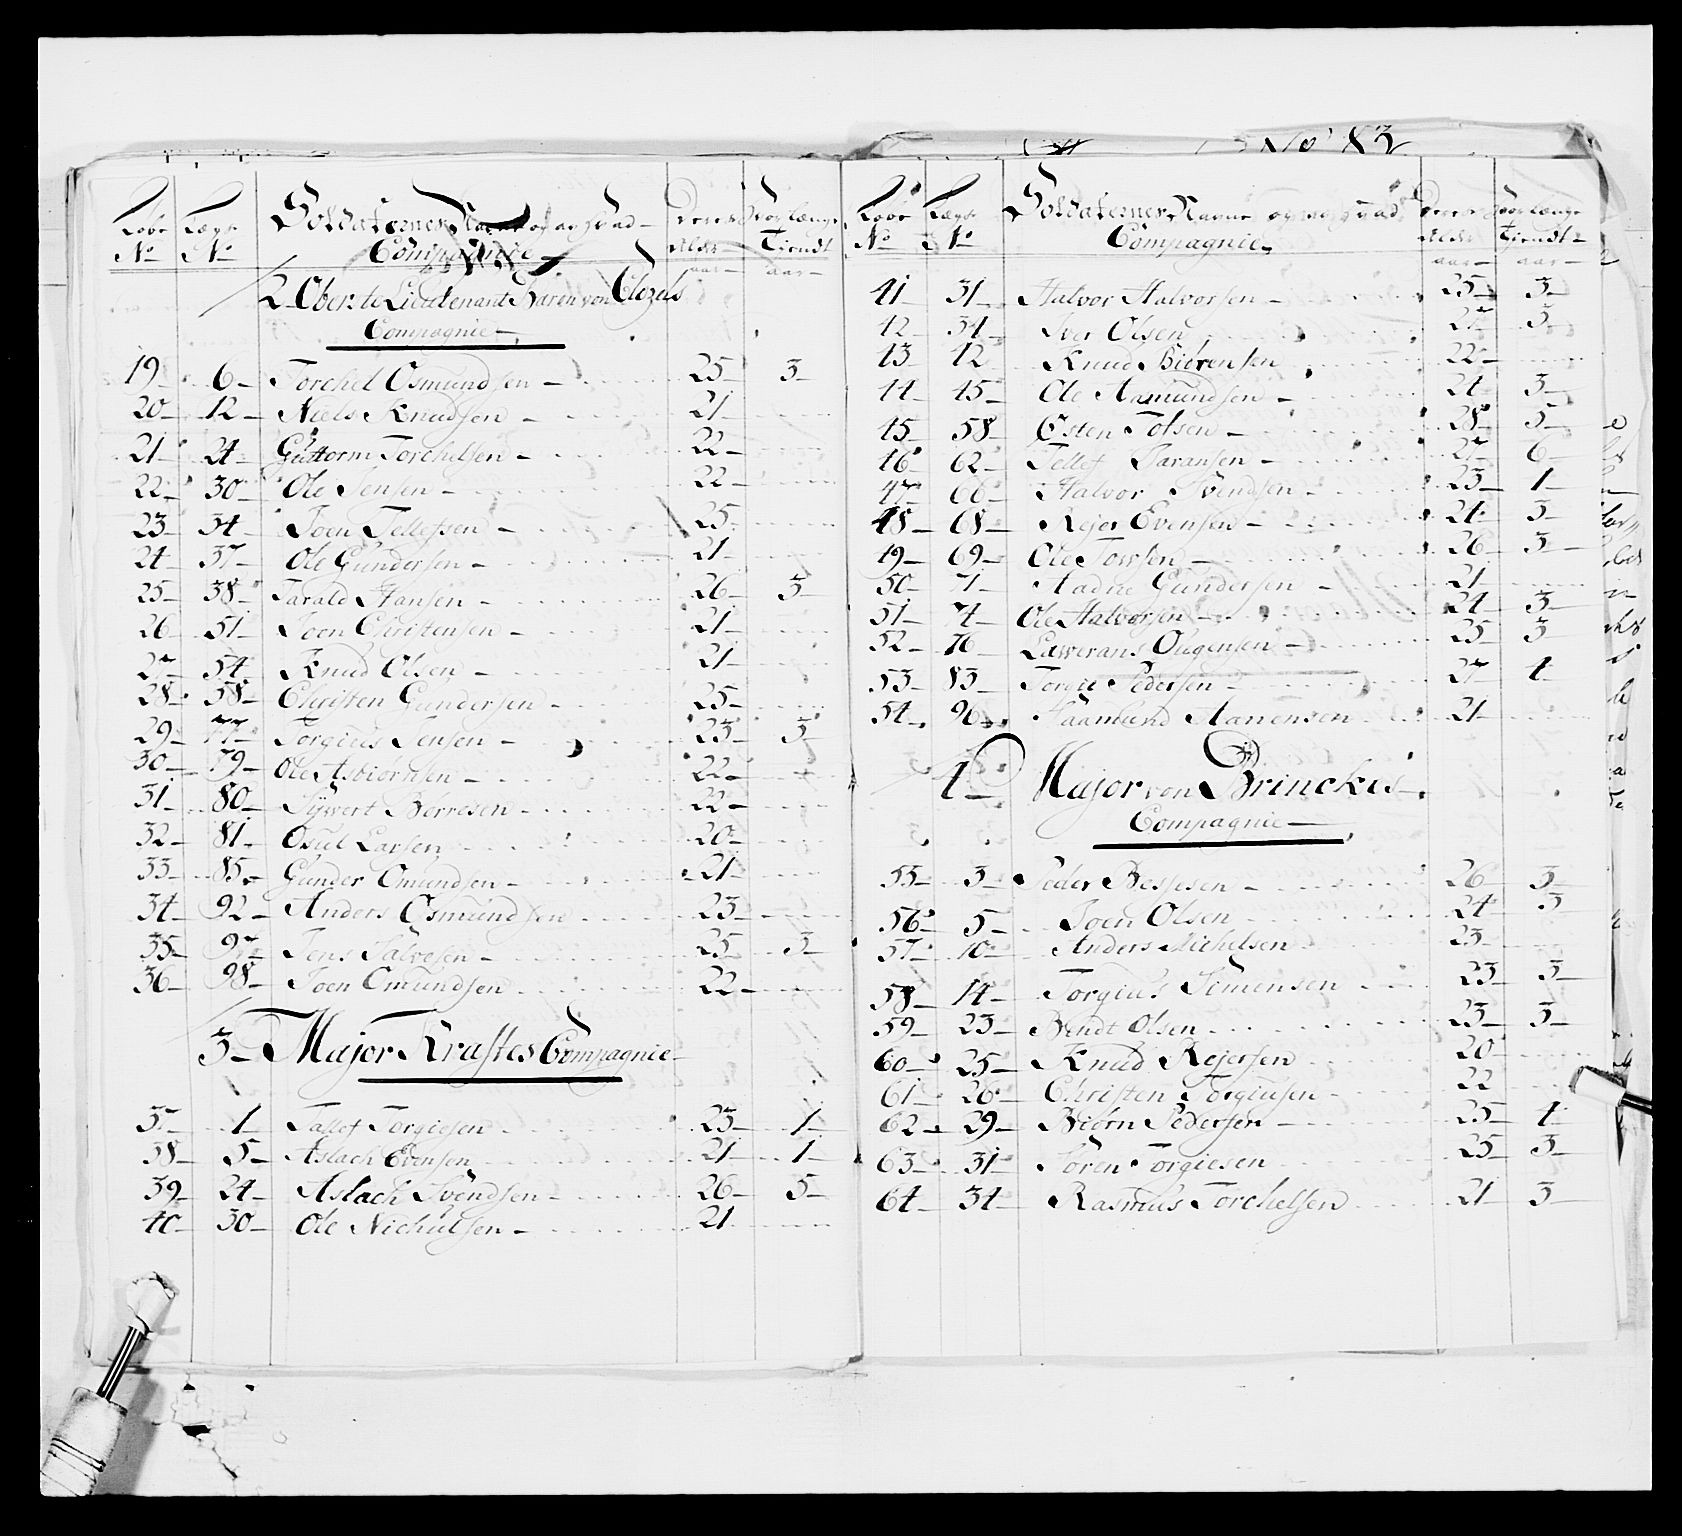 Løbe No Lægs No Soldaternes Navne og af hvad Compagnie Deres Alder aar Hvor længe Tiendt aar
2 Oberste Lieutenant Baron von Clozels
Compagnie
19 6 Torchel Osmundsen 25 3
20 12 Niels Knudsen 21
21 24 Guttorm Torchelsen 22
22 30 Ole Jensen 22
23 34 Joen Tellefssen 25
24 37 Ole Gundersen 21
25 38 Tarald Hansen 26 3
26 51 Joen Christensen 21
27 54 Knud Olsen 21
28 58 Christen Gundersen 25
29 77 Torgius Jensen 23 3
30 79 Ole Asbiørnsen 22
31 80 Syvert Børresen 22
32 81 Osul Larsen 20
33 85 Gunder Omundsen 21
34 92 Anders Osmundsen 23
35 97 Jens Salvesen 25 3
36 98 Joen Omundsen 22
3 Major Kraftes Compagnie
37 1 Tallef Torgiesen 23 1
38 5 Aslach Evensen 21 1
39 24 Aslach Svendsen 26 5
40 30 Ole Nichulsen 21
No 83
Løbe No Lægs No Soldaternes Navne og af hvad Compagnie Deres Alder aar Hvor længe Tiendt aar
41 31 Halvor Halvorsen 25 3
42 34 Iver Olsen 27 3
43 42 Knud Biørensen 22
44 45 Ole Aamundsen 24 3
45 58 Østen Tolsen 28 5
46 62 Tellef Taransen 27 6
47 66 Halvor Svendsen 23 1
48 68 Rejer Evensen 24 3
49 69 Ole 26 3
50 71 Aadne Gundersen 21
51 74 Ole Halvorsen 24 3
52 76 Lawerans Ougensen 25 3
53 83 Torgie Pedersen 27 4
54 96 Haamund Aanensen 21
4 Major von Brinckes
Compagnie
55 3 Peder Bessesen 26 3
56 5 Joen Olsen 24 3
57 10 Anders Michelsen 23
58 14 Torgius Simensen 23 3
59 23 Bendt Olsen 23 3
60 25 Knud Rejersen 20
61 26 Christen Torgiusen 22
62 29 Biørn Pedersen 25 4
63 31 Søren Torgiesen 25 3
64 34 Rasmus Torchelsen 21 3